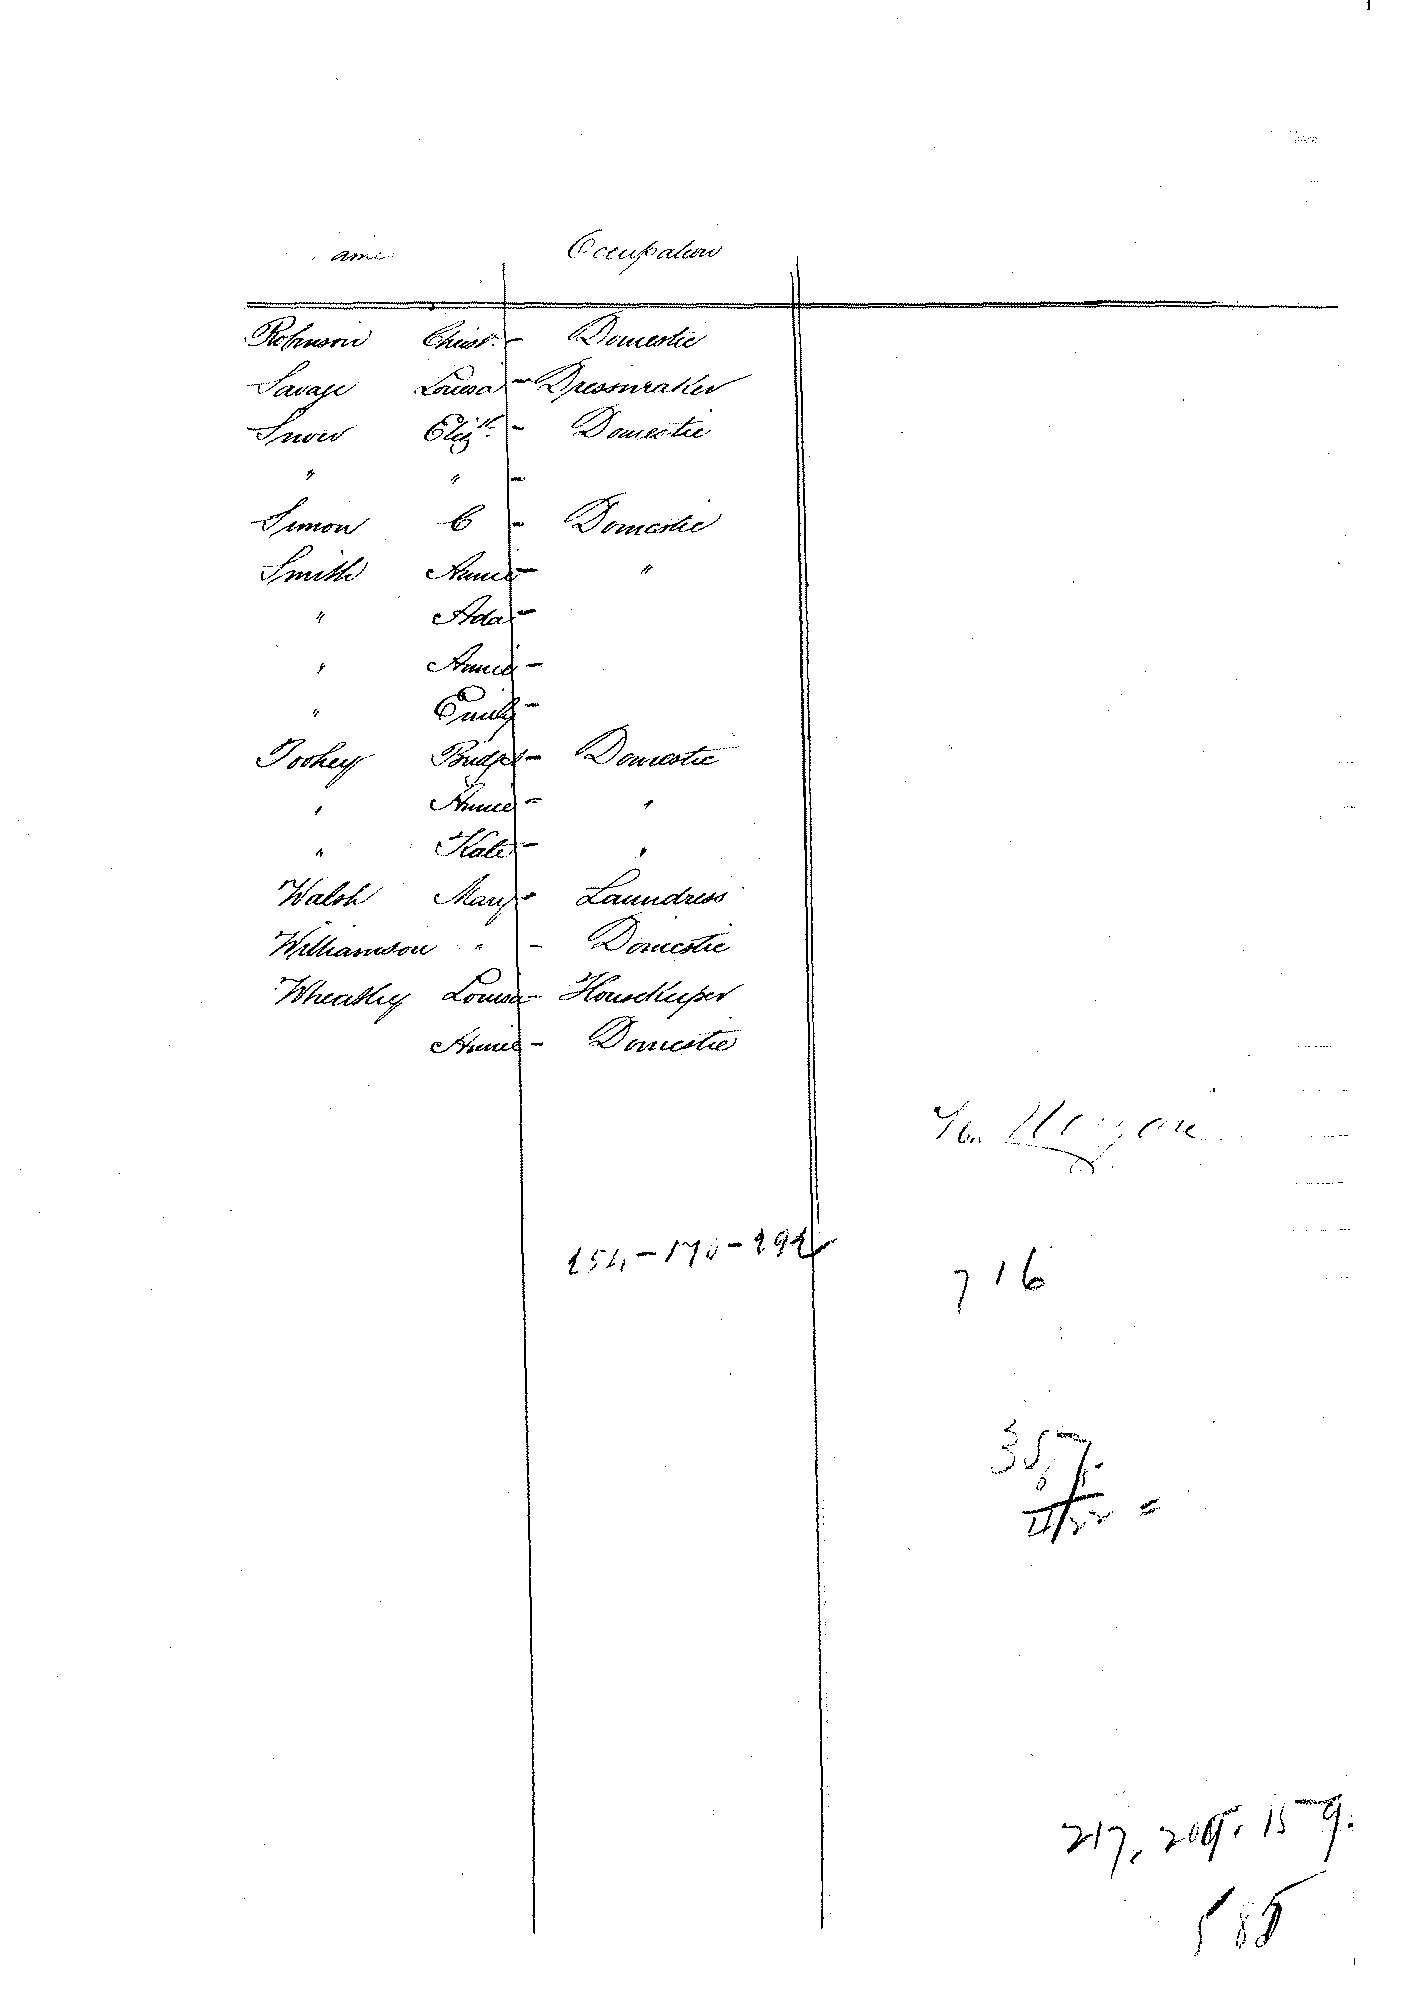 ame Occupation
Robinson Christ. - Domestic
Savage Louisa - Dressmaker
Snow Elizth. - Domestic
" " -
Simon C - Domestic
Smith Annie - "
" Ada -
" Annie -
" Emily -
Toohey Bridget - Domestic
" Annie - "
" Kate - "
Walsh Mary - Laundress
Williamson " - Domestic
Wheatley Louisa - Housekeeper
Annie - Domestic
254 - 170 - 292
716
357
217. 209. 159.
585